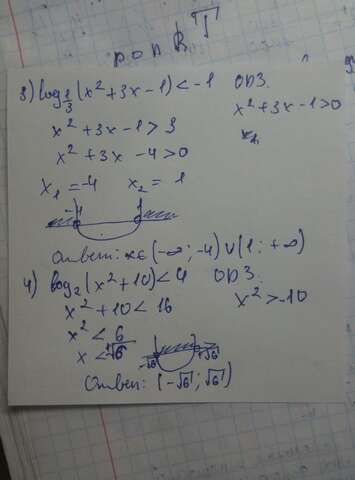 3) log_{1/3}(x²+3x-1)<-1 ОДЗ.
x²+3x-1>3 x²+3x-1>0
x²+3x-4>0 x₁
x₁=-4 x₂=1
-4 1
Ответ: x∈(-∞;-4)∪(1;+∞)
4) log₂(x²+10)<4 ОДЗ.
x²+10<16 x²>-10
x²<6
x<±√6 -√6 +√6
Ответ: (-√6;√6)